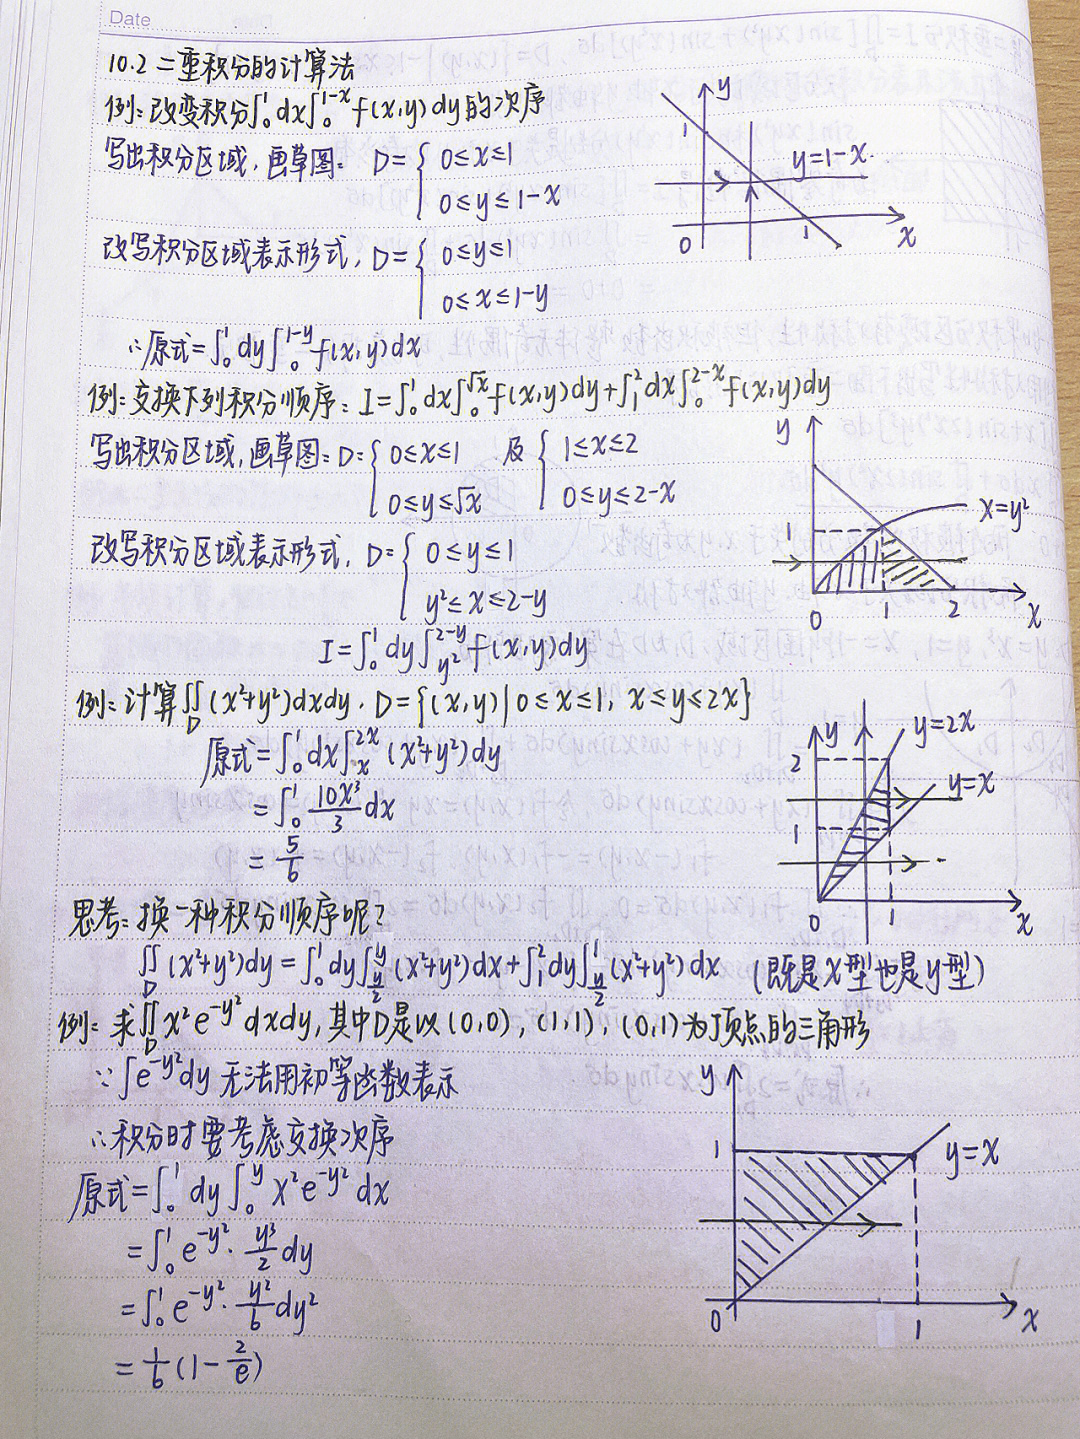 Date
10.2 二重积分的计算法
例: 改变积分∫₀¹dx∫₀^{1-x}f(x,y)dy的次序
写出积分区域, 画草图: D={0≤x≤1
0≤y≤1-x
改写积分区域表示形式, D={0≤y≤1
0≤x≤1-y
∴原式=∫₀¹dy∫₀^{1-y}f(x,y)dx
y
1
y=1-x.
0
1
x
例: 交换下列积分顺序: I=∫₀¹dx∫₀^{√x}f(x,y)dy+∫₁²dx∫₀^{2-x}f(x,y)dy
写出积分区域, 画草图: D={0≤x≤1 及 {1≤x≤2
0≤y≤√x 0≤y≤2-x
改写积分区域表示形式, D={0≤y≤1
y²≤x≤2-y
I=∫₀¹dy∫_{y²}^{2-y}f(x,y)dy
y
x=y²
1
0
1
2
x
例: 计算∬_D(x²+y²)dxdy. D={(x,y)|0≤x≤1, x≤y≤2x}
原式=∫₀¹dx∫ₓ^{2x}(x²+y²)dy
=∫₀¹ 10x³/3 dx
=5/6
y
y=2x
2
y=x
1
0
1
x
思考: 换一种积分顺序呢?
∬_D(x²+y²)dy=∫₀¹dy∫_{y/2}^{y}(x²+y²)dx+∫₁²dy∫_{y/2}^{1}(x²+y²)dx (既是X型也是y型)
例: 求∬_D x²e^{-y²}dxdy, 其中D是以(0,0), (1,1), (0,1)为顶点的三角形
∵∫e^{-y²}dy无法用初等函数表示
∴积分时要考虑交换次序
原式=∫₀¹dy∫₀^y x²e^{-y²}dx
=∫₀¹e^{-y²}·y³/2 dy
=∫₀¹e^{-y²}·y²/6 dy²
=1/6(1-2/e)
y
1
y=x
0
1
x